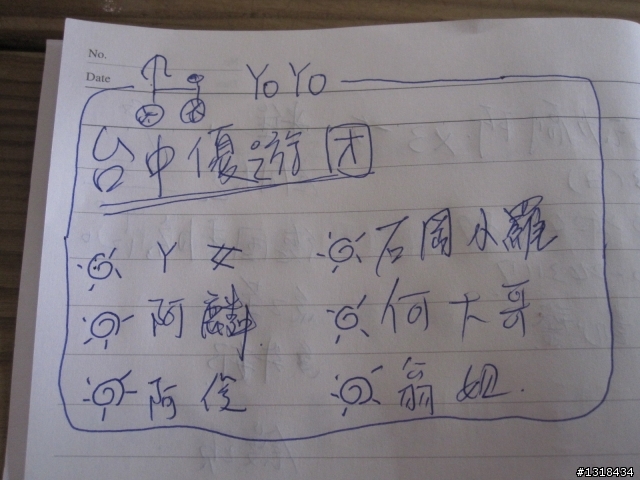 No.
Date
YoYo
台中優游团
Y 女
石岡小羅
阿麟
何大哥
阿俊
翁姐.
#1318434